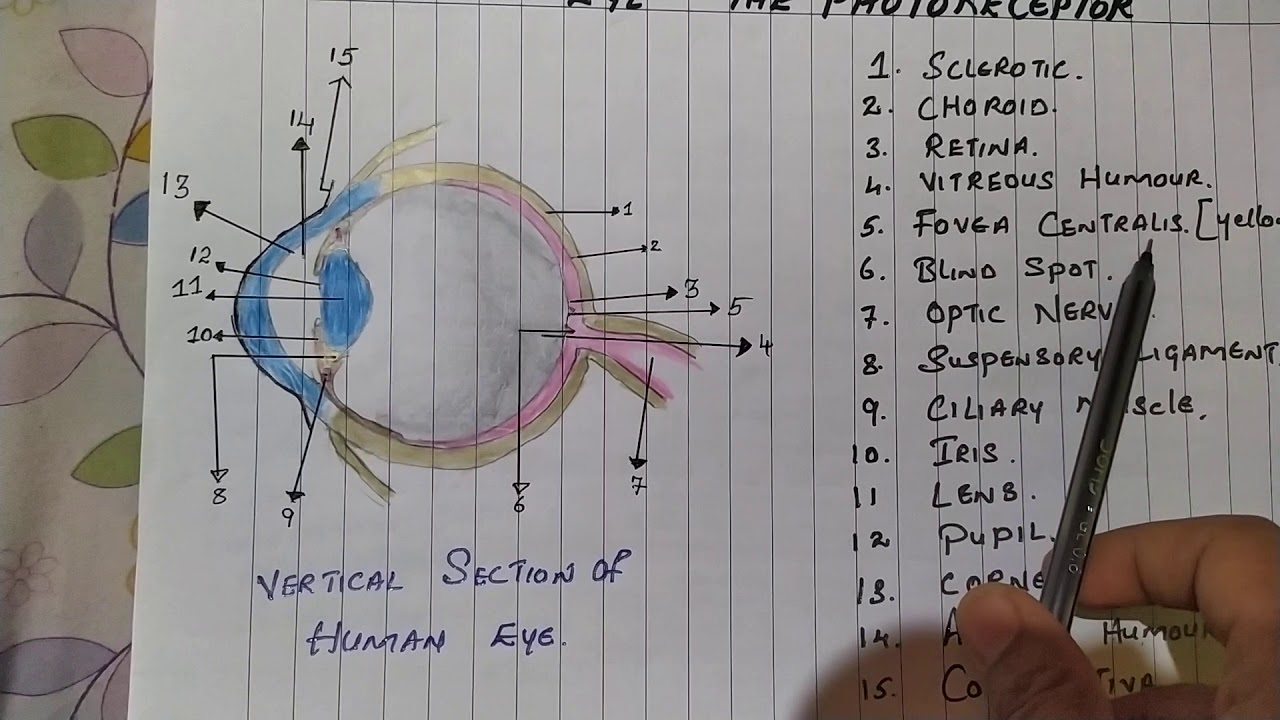 THE PHOTORECEPTOR
15
14
13
12
11
10
8
9
6
7
1
2
3
5
4
VERTICAL SECTION OF
HUMAN EYE.
1. SCLEROTIC.
2. CHOROID.
3. RETINA.
4. VITREOUS HUMOUR.
5. FOVEA CENTRALIS. [yello
6. BLIND SPOT.
7. OPTIC NERV
8. SUSPENSORY LIGAMENT.
9. CILIARY MUSCLE.
10. IRIS.
11 LENS.
12 PUPIL.
13. CORNE
14. A HUMOUR
15. CO TIVA